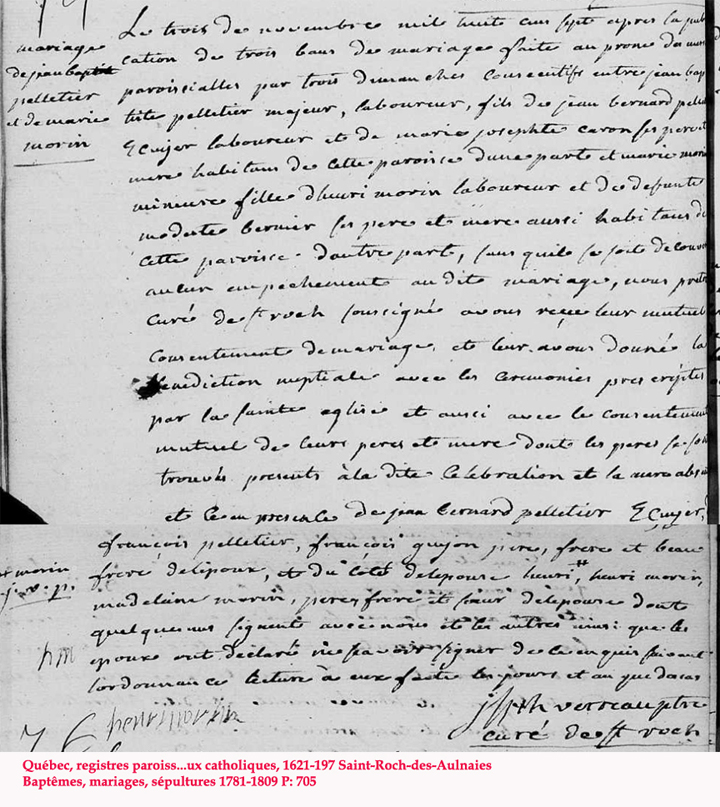 mariage
de jean baptiste
pelletier
et de marie
morin
Le trois de novembre mil huit cens sept apres la pub
cation de trois bans de mariage faite au prone des mess
paroissialles par trois dimanches consecutifs entre jean bap
tiste pelletier majeur, laboureur, fils de jean bernard pelle
Ecuyer laboureur et de marie josephte caron ses pere et
mere habitans de cette paroisse d'une part et marie morin
mineure fille d'henri morin laboureur et de defunte
modeste bernier ses pere et mere aussi habitans de
cette paroisse d'autre part, sans quil se soit decouv
aucun empechement au dite mariage, nous pretre
curé de st roch soussigné avons reçu leur mutuel
consentement de mariage, et leur avons donné la
Benediction nuptiale avec les ceremonies prescriptes
par la sainte eglise et aussi avec le consentement
mutuel de leurs peres et mere dont les peres se son
trouvés presents à la dite celebration et la mere abse
et ce en presence de jean bernard pelletier Ecuyer,
françois pelletier, françois guyon pere, frere et beau
frere de lepoux, et du côté de lepouse henri #, henri morin,
madelaine morin, peres frere et sœur de lepouse dont
quelques uns signent avec nous et les autres ainsi que les
epoux ont déclaré ne savoir signer de ce enquis suivant
lordonnance lecture à eux faite les jours et an que dessus
# morin
j. v. p.
hm
henri morin
jsph verreau ptre
curé de st roch
Québec, registres paroiss...ux catholiques, 1621-197 Saint-Roch-des-Aulnaies
Baptêmes, mariages, sépultures 1781-1809 P: 705